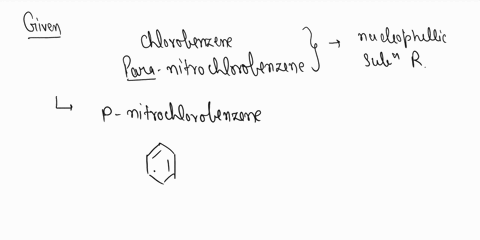 Given
chlorobenzene
Para-nitrochlorobenzene } → nucleophillic
Subⁿ R.
↳ p-nitrochlorobenzene